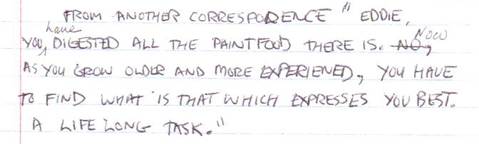 FROM ANOTHER CORRESPONDENCE " EDDIE,
YOU, have DIGESTED ALL THE PAINT FOOD THERE IS. NO, NOW
AS YOU GROW OLDER AND MORE EXPERIENED, YOU HAVE
TO FIND WHAT IS THAT WHICH EXPRESSES YOU BEST.
A LIFE LONG TASK."